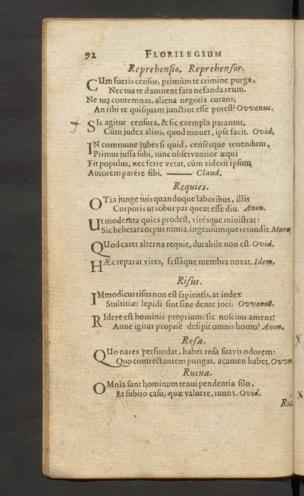 92 FLORILEGIUM
Reprehensio. Reprehensor.
CUm fueris censor, primùm te crimine purga,
Nec tua te damnent facta nefanda reum.
Ne tua contemnas, aliena negotia curans;
An tibi te quisquam junctior esse potest? Ovvenus.
SIc agitur censura, & sic exempla parantur,
Cùm judex alios, quod monet, ipse facit. Ovid.
IN commune jubes si quid, censesque tenendum,
Primus jussa subi, tunc observantior æqui
Fit populus, nec ferre vetat, cùm viderit ipsum
Autorem parére sibi, —— Claud.
Requies.
OTia junge tuis quandoque laboribus, illis
Corporis ut robur par queat esse diu. Anon.
Ut moderata quies prodest, virésque ministrat:
Sic hebetat corpus nimia, ingeniumque retundit. Muret
QUod caret alterna requie, durabile non est. Ovid.
HÆc reparat vires, fessaque membra novat. Idem.
Risus.
IMmodicus risus non est sapientis, at index
Stultitiæ: lepidi sint sine dente joci. Ovvenus.
RIdere est hominis proprium: sic noscitur amens:
Anne igitur propriè desipit omnis homo? Anon.
Rosa.
QUo nares perfundat, habet rosa suavis odorem:
Quo contrectantem pungat, acumen habet. Ovven
Ruina.
OMnia sunt hominum tenui pendentia filo,
Et subito casu, quæ valuere, ruunt. Ovid.